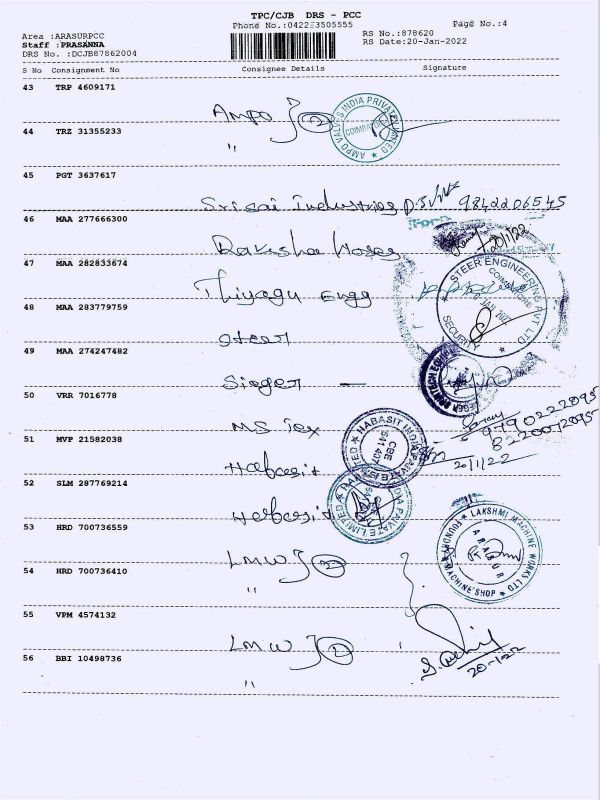 TPC/CJB DRS - PCC
Phone No.:04223505555
Page No.:4
Area :ARASURPCC
RS No.:878620
Staff :PRASANNA
RS Date:20-Jan-2022
DRS No. :DCJB87862004
S No Consignment No Consignee Details Signature
43 TRP 4609171
AMPO } 2
44 TRZ 31355233
"
AMPO VALVES INDIA PRIVATE LIMITED
COIMBATORE
45 PGT 3637617
Srisai Industries 9842206545
46 MAA 277666300
Raksha Hoses
20/1/22
47 MAA 282833674
Thiyagu Engg
STEER ENGINEERING PVT LTD
COIMBATORE
SECURITY
48 MAA 283779759
Steer
49 MAA 274247482
Sieger -
50 VRR 7016778
MS Tex
9790222095
8220072095
51 MVP 21582038
Habasit
20/1/22
HABASIT INDIA PRIVATE LIMITED
CBE
641 407
52 SLM 287769214
Habasit
53 HRD 700736559
LMW } 2
LAKSHMI MACHINE WORKS LTD
FOUNDRY & MACHINE SHOP
ARASUR
54 HRD 700736410
"
55 VPM 4574132
LMW } 2
56 BBI 10498736
"
20-1-22